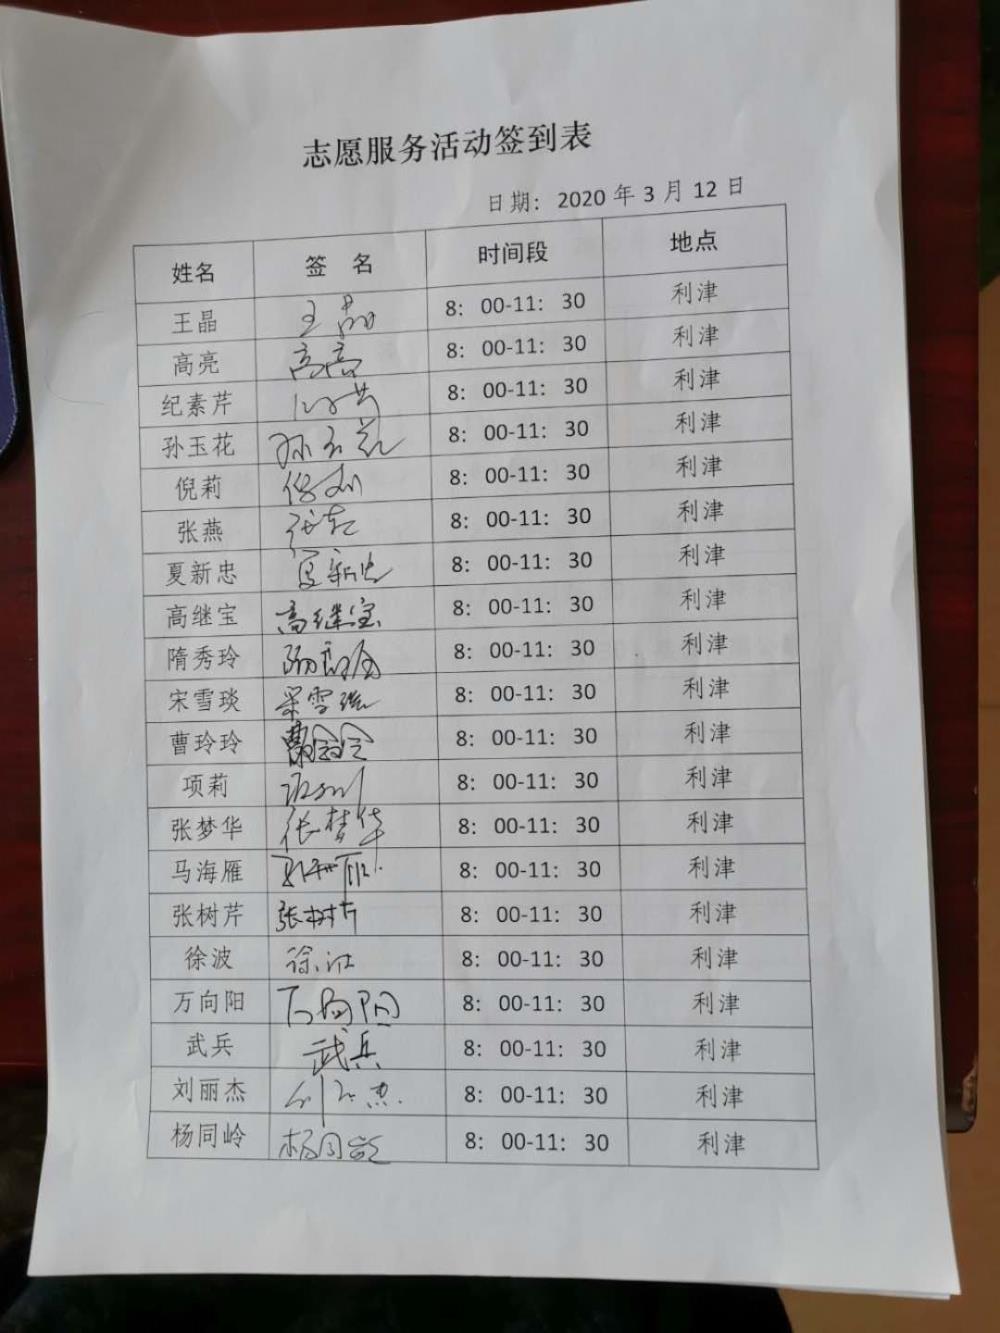 志愿服务活动签到表
日期： 2020 年 3 月 12 日
姓名 签 名 时间段 地点
王晶 王晶 8：00-11：30 利津
高亮 高亮 8：00-11：30 利津
纪素芹 8：00-11：30 利津
孙玉花 孙玉花 8：00-11：30 利津
倪莉 倪莉 8：00-11：30 利津
张燕 张燕 8：00-11：30 利津
夏新忠 夏新忠 8：00-11：30 利津
高继宝 高继宝 8：00-11：30 利津
隋秀玲 隋秀玲 8：00-11：30 利津
宋雪琰 宋雪琰 8：00-11：30 利津
曹玲玲 曹玲玲 8：00-11：30 利津
项莉 项莉 8：00-11：30 利津
张梦华 张梦华 8：00-11：30 利津
马海雁 马海雁 8：00-11：30 利津
张树芹 张树芹 8：00-11：30 利津
徐波 徐波 8：00-11：30 利津
万向阳 万向阳 8：00-11：30 利津
武兵 武兵 8：00-11：30 利津
刘丽杰 刘丽杰 8：00-11：30 利津
杨同岭 杨同岭 8：00-11：30 利津